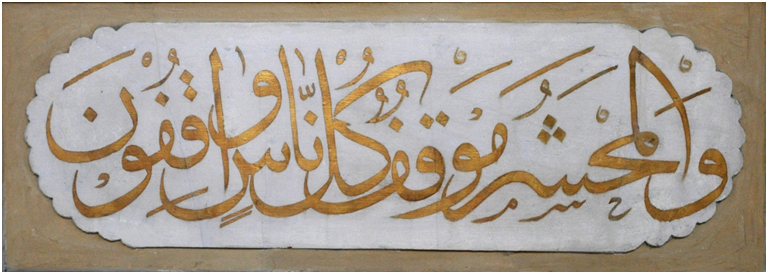 والمحشر موقف كل ناس واقفون